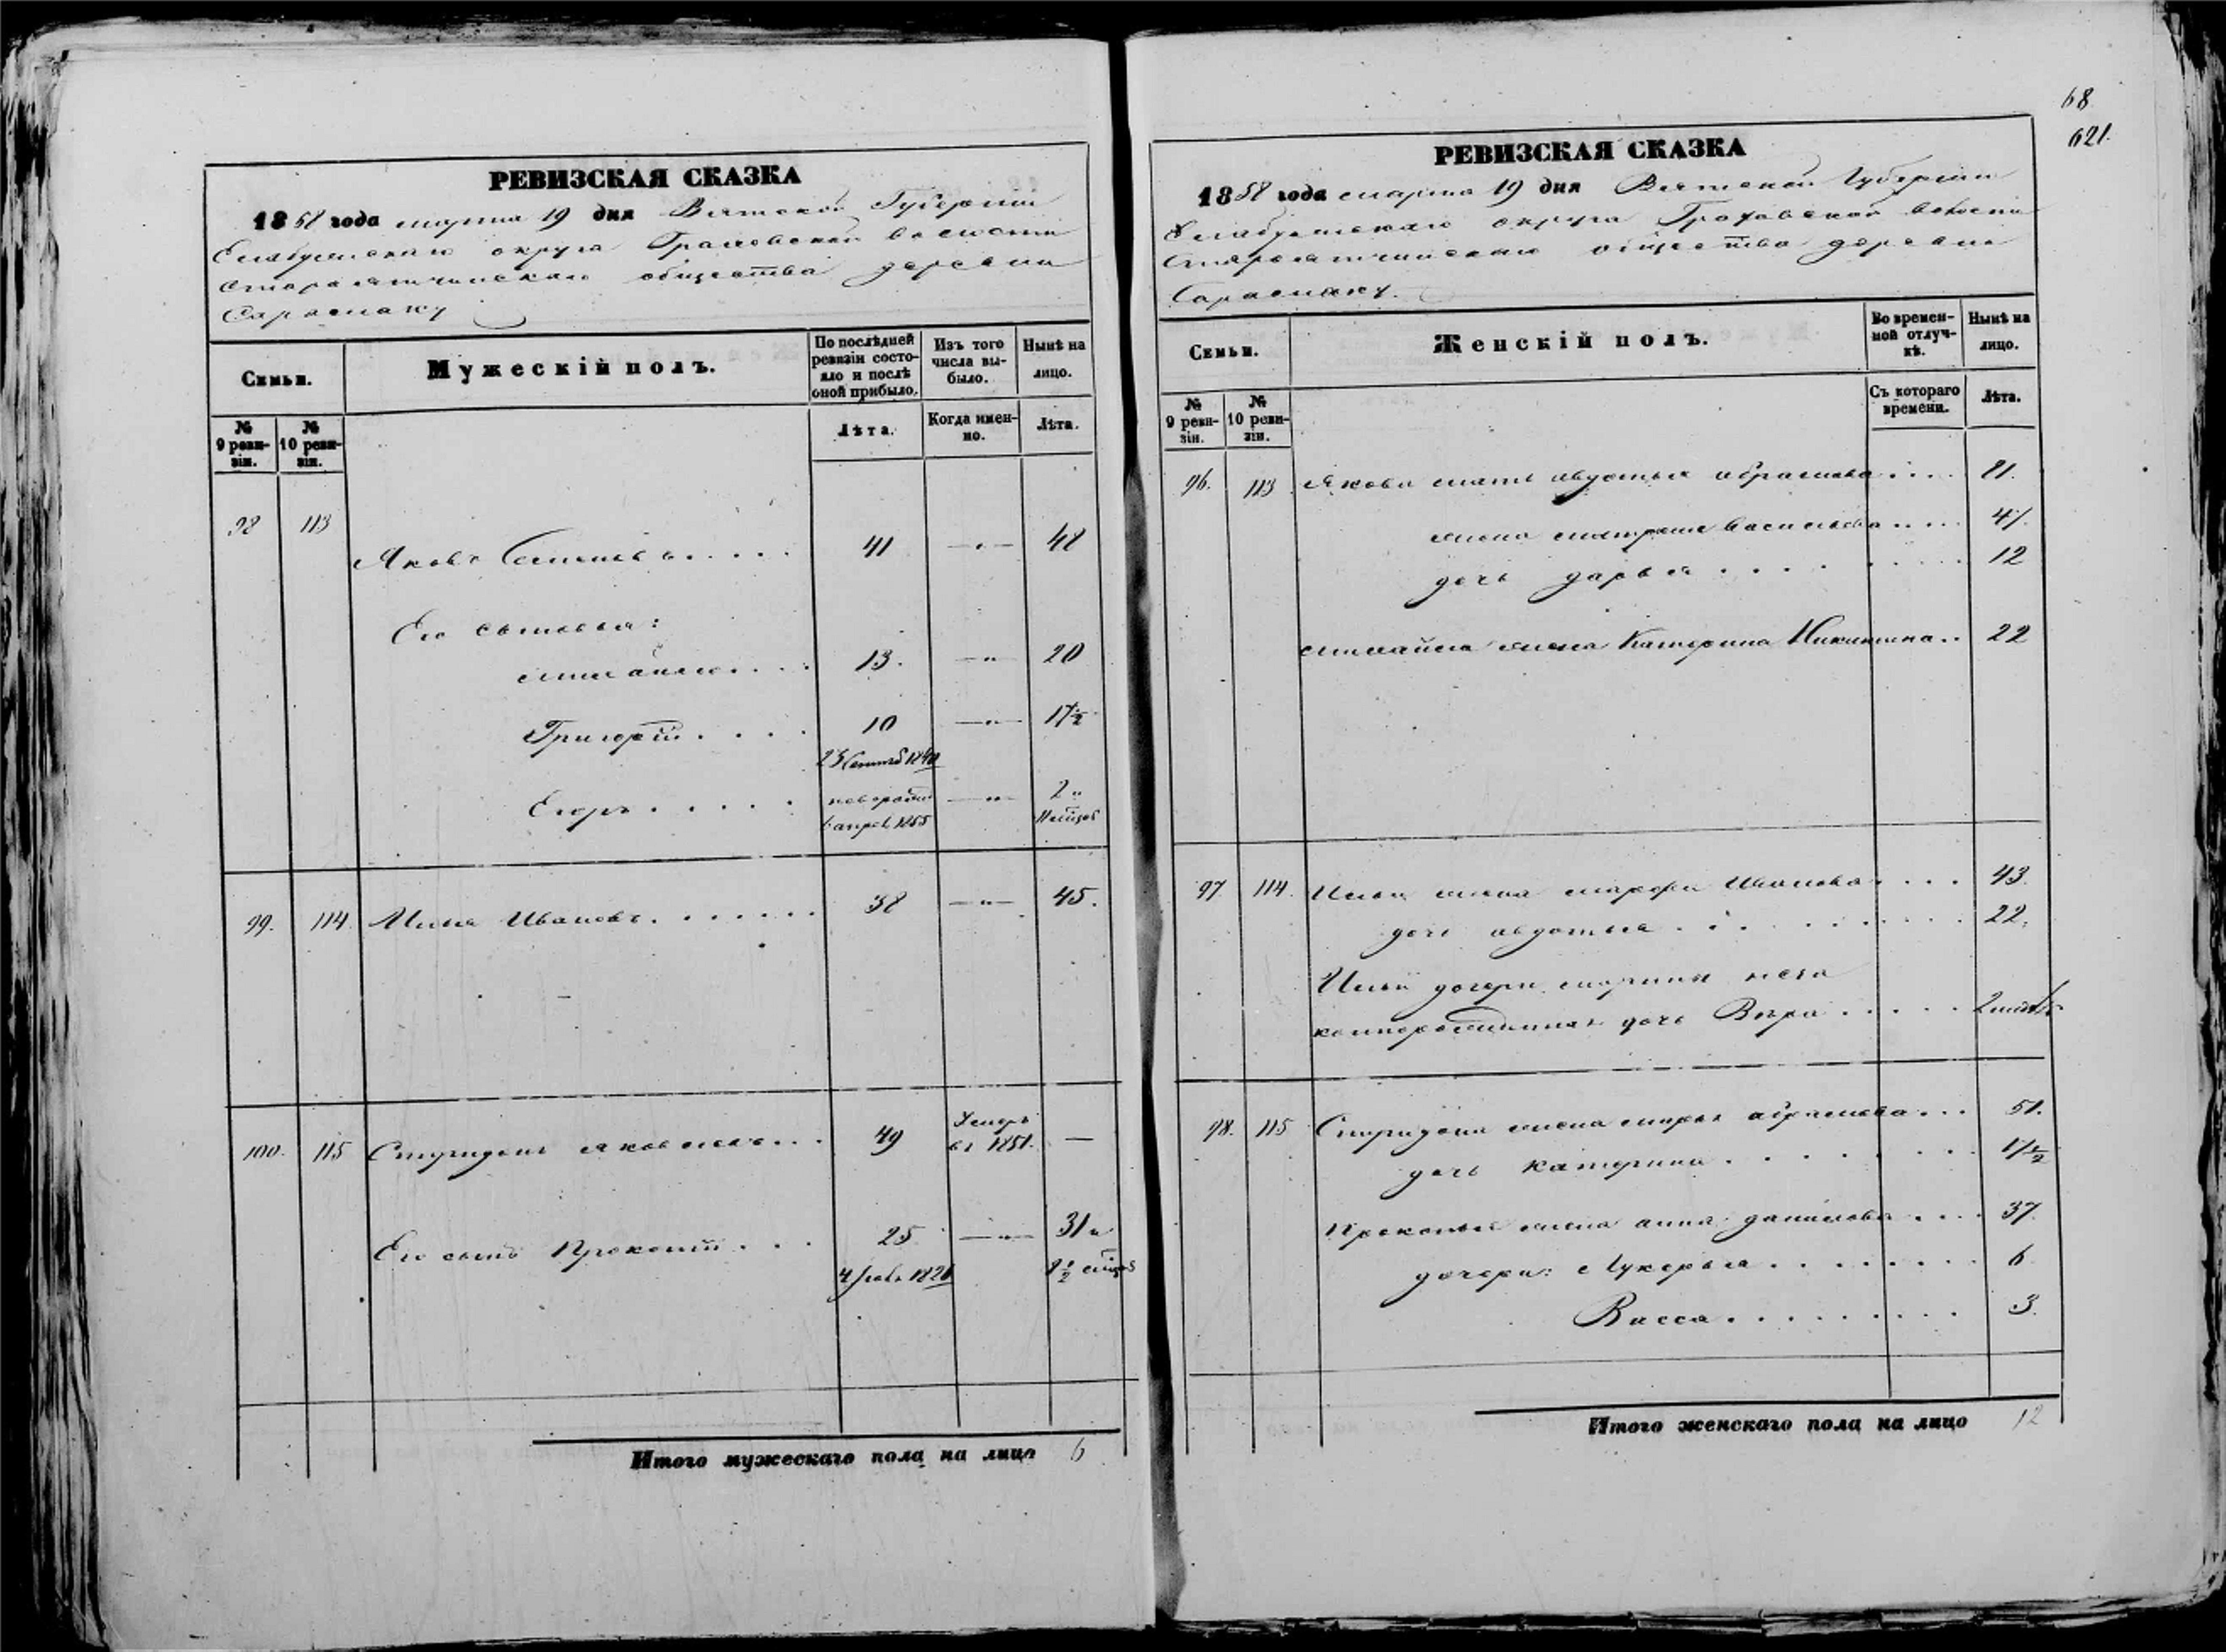 РЕВИЗСКАЯ СКАЗКА
1858 года марта 19 дня Вятской Губернiи
Елабужскаго округа Граховской волости
общества деревни
Сарамаку
Семьи.
Мужескiй полъ.
По послѣдней ревизiи состояло и послѣ оной прибыло.
Изъ того числа выбыло.
Нынѣ на лицо.
№ 9 ревизiи.
№ 10 ревизiи.
Лѣта.
Когда именно.
Лѣта.
98 113
Яковъ 41 —„— 48
Его сыновья:
Михайло 13. —„— 20
Григорiй 10 —„— 17½
Егоръ —„— 2 „
99. 114. Илья Ивановъ 38 —„— 45.
100. 115 Спиридонъ Яковлевъ 49 Умеръ въ 1851. —
Его сынъ Прокопiй 25 —„— 31 и
Итого мужескаго пола на лицо 6
68
621.
РЕВИЗСКАЯ СКАЗКА
1858 года марта 19 дня Вятской Губернiи
Елабужскаго округа Граховской волости
общества деревни
Сарамаку.
Семьи.
Женскiй полъ.
Во временной отлучкѣ.
Нынѣ на лицо.
№ 9 ревизiи.
№ 10 ревизiи.
Съ котораго времени.
Лѣта.
96. 113 Якова мать Авдотья Абрамова 81.
жена Матрена Васильева 47.
дочь Дарья 12
Михайла жена Катерина Никитина 22
97 114. Ильи жена Марфа Иванова 43.
дочь Авдотья 22.
Ильи дочери Марины неза
коннорожденная дочь Вера
98. 115 Спиридона жена Марья Абрамова 51.
дочь Катерина 17½
Прокопья жена Анна Данилова 37
дочери: Лукерья 6
Васса 3.
Итого женскаго пола на лицо 12